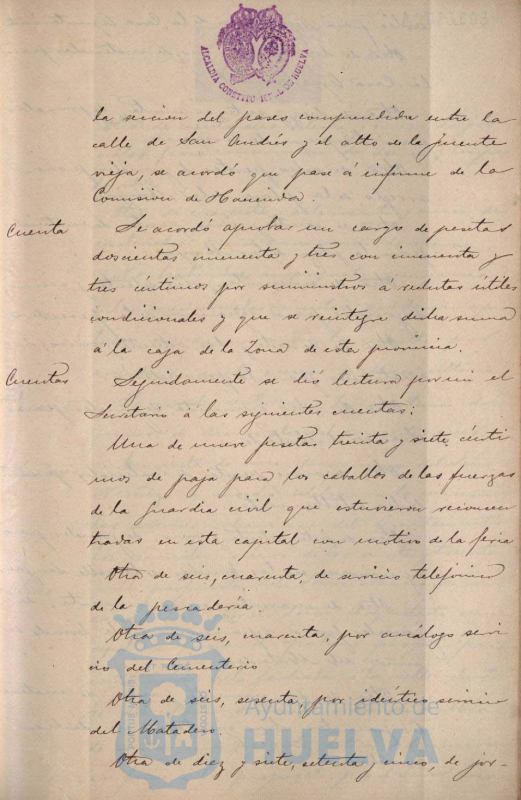 ALCALDIA CONSTITUCIONAL DE HUELVA
la sección del paseo comprendida entre la
calle de San Andrés y el alto de la fuente
vieja, se acordó que pase á informe de la
Comisión de Hacienda.
Cuenta
Se acordó aprobar un cargo de pesetas
doscientas cincuenta y tres con cincuenta y
tres céntimos por suministros á reclutas útiles
condicionales y que se reintegre dicha suma
á la caja de la Zona de esta provincia.
Cuentas
Seguidamente se dió lectura por mi el
Secretario á las siguientes cuentas:
Una de nueve pesetas treinta y siete cénti
mos de paja para los caballos de las fuerzas
de la Guardia civil que estuvieron reconcen
tradas en esta capital con motivo de la feria
Otra de seis, cuarenta, de servicio telefónico
de la pescadería.
Otra de seis, cuarenta, por análogo servi
cio del Cementerio
Otra de seis, sesenta, por idéntico servicio
del Matadero.
Otra de diez y siete, setenta y cinco, de jor-
Ayuntamiento de
HUELVA